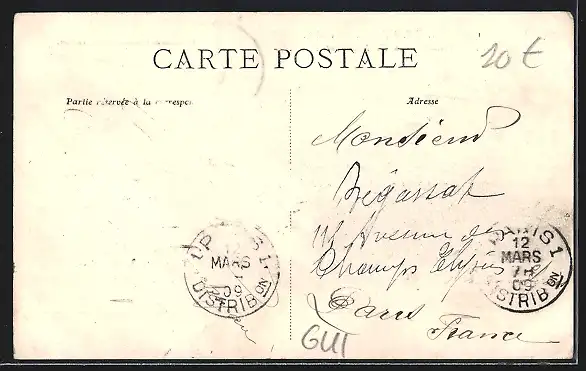 CARTE POSTALE
20 €
Partie réservée à la correspon
Adresse
Monsieur
Bégassat
114 Avenue des
Champs Elysées
Paris
France
PARIS 1
12
MARS
7H
09
DISTRIBON
12
MARS
09
DISTRIBON
GUI